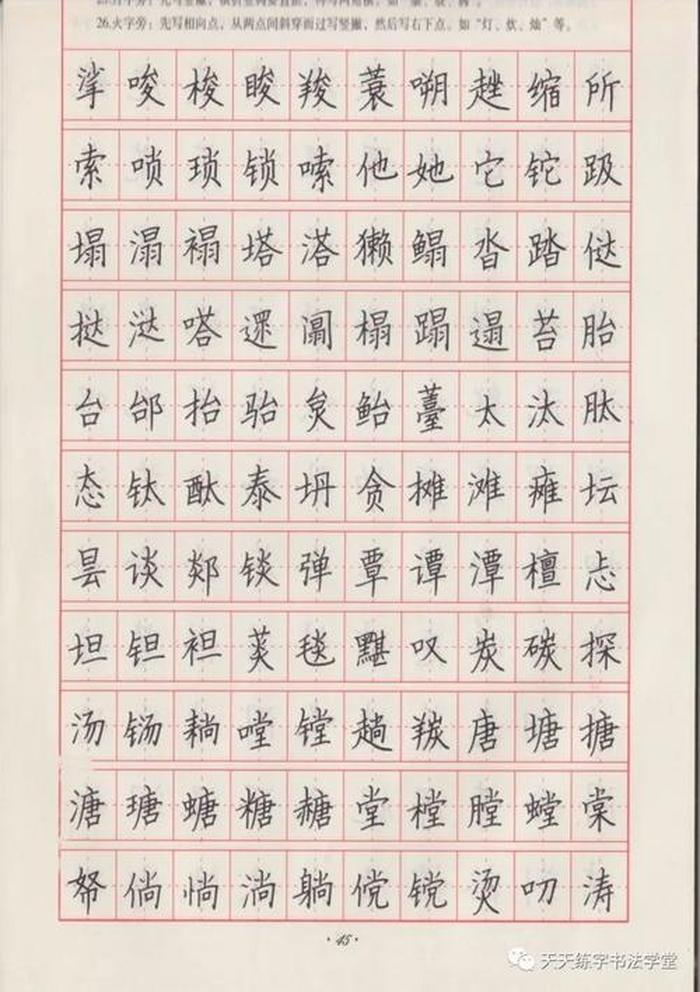 26.火字旁：先写相向点，从两点间斜穿而过写竖撇，然后写右下点。如“灯、炊、灿”等。
挲唆梭睃羧蓑嗍趖缩所
索唢琐锁嗦他她它铊趿
塌溻褟塔溚獭鳎沓踏㑜
挞㳠嗒遝阘榻蹋遢苔胎
台邰抬骀炱鲐薹太汰肽
态钛酞泰坍贪摊滩瘫坛
昙谈郯锬弹覃谭潭檀忐
坦钽袒菼毯黮叹炭碳探
汤铴耥嘡镗趟羰唐塘搪
溏瑭螗糖赯堂樘膛螳棠
帑倘惝淌躺傥镋烫叨涛
·45·
天天练字书法学堂